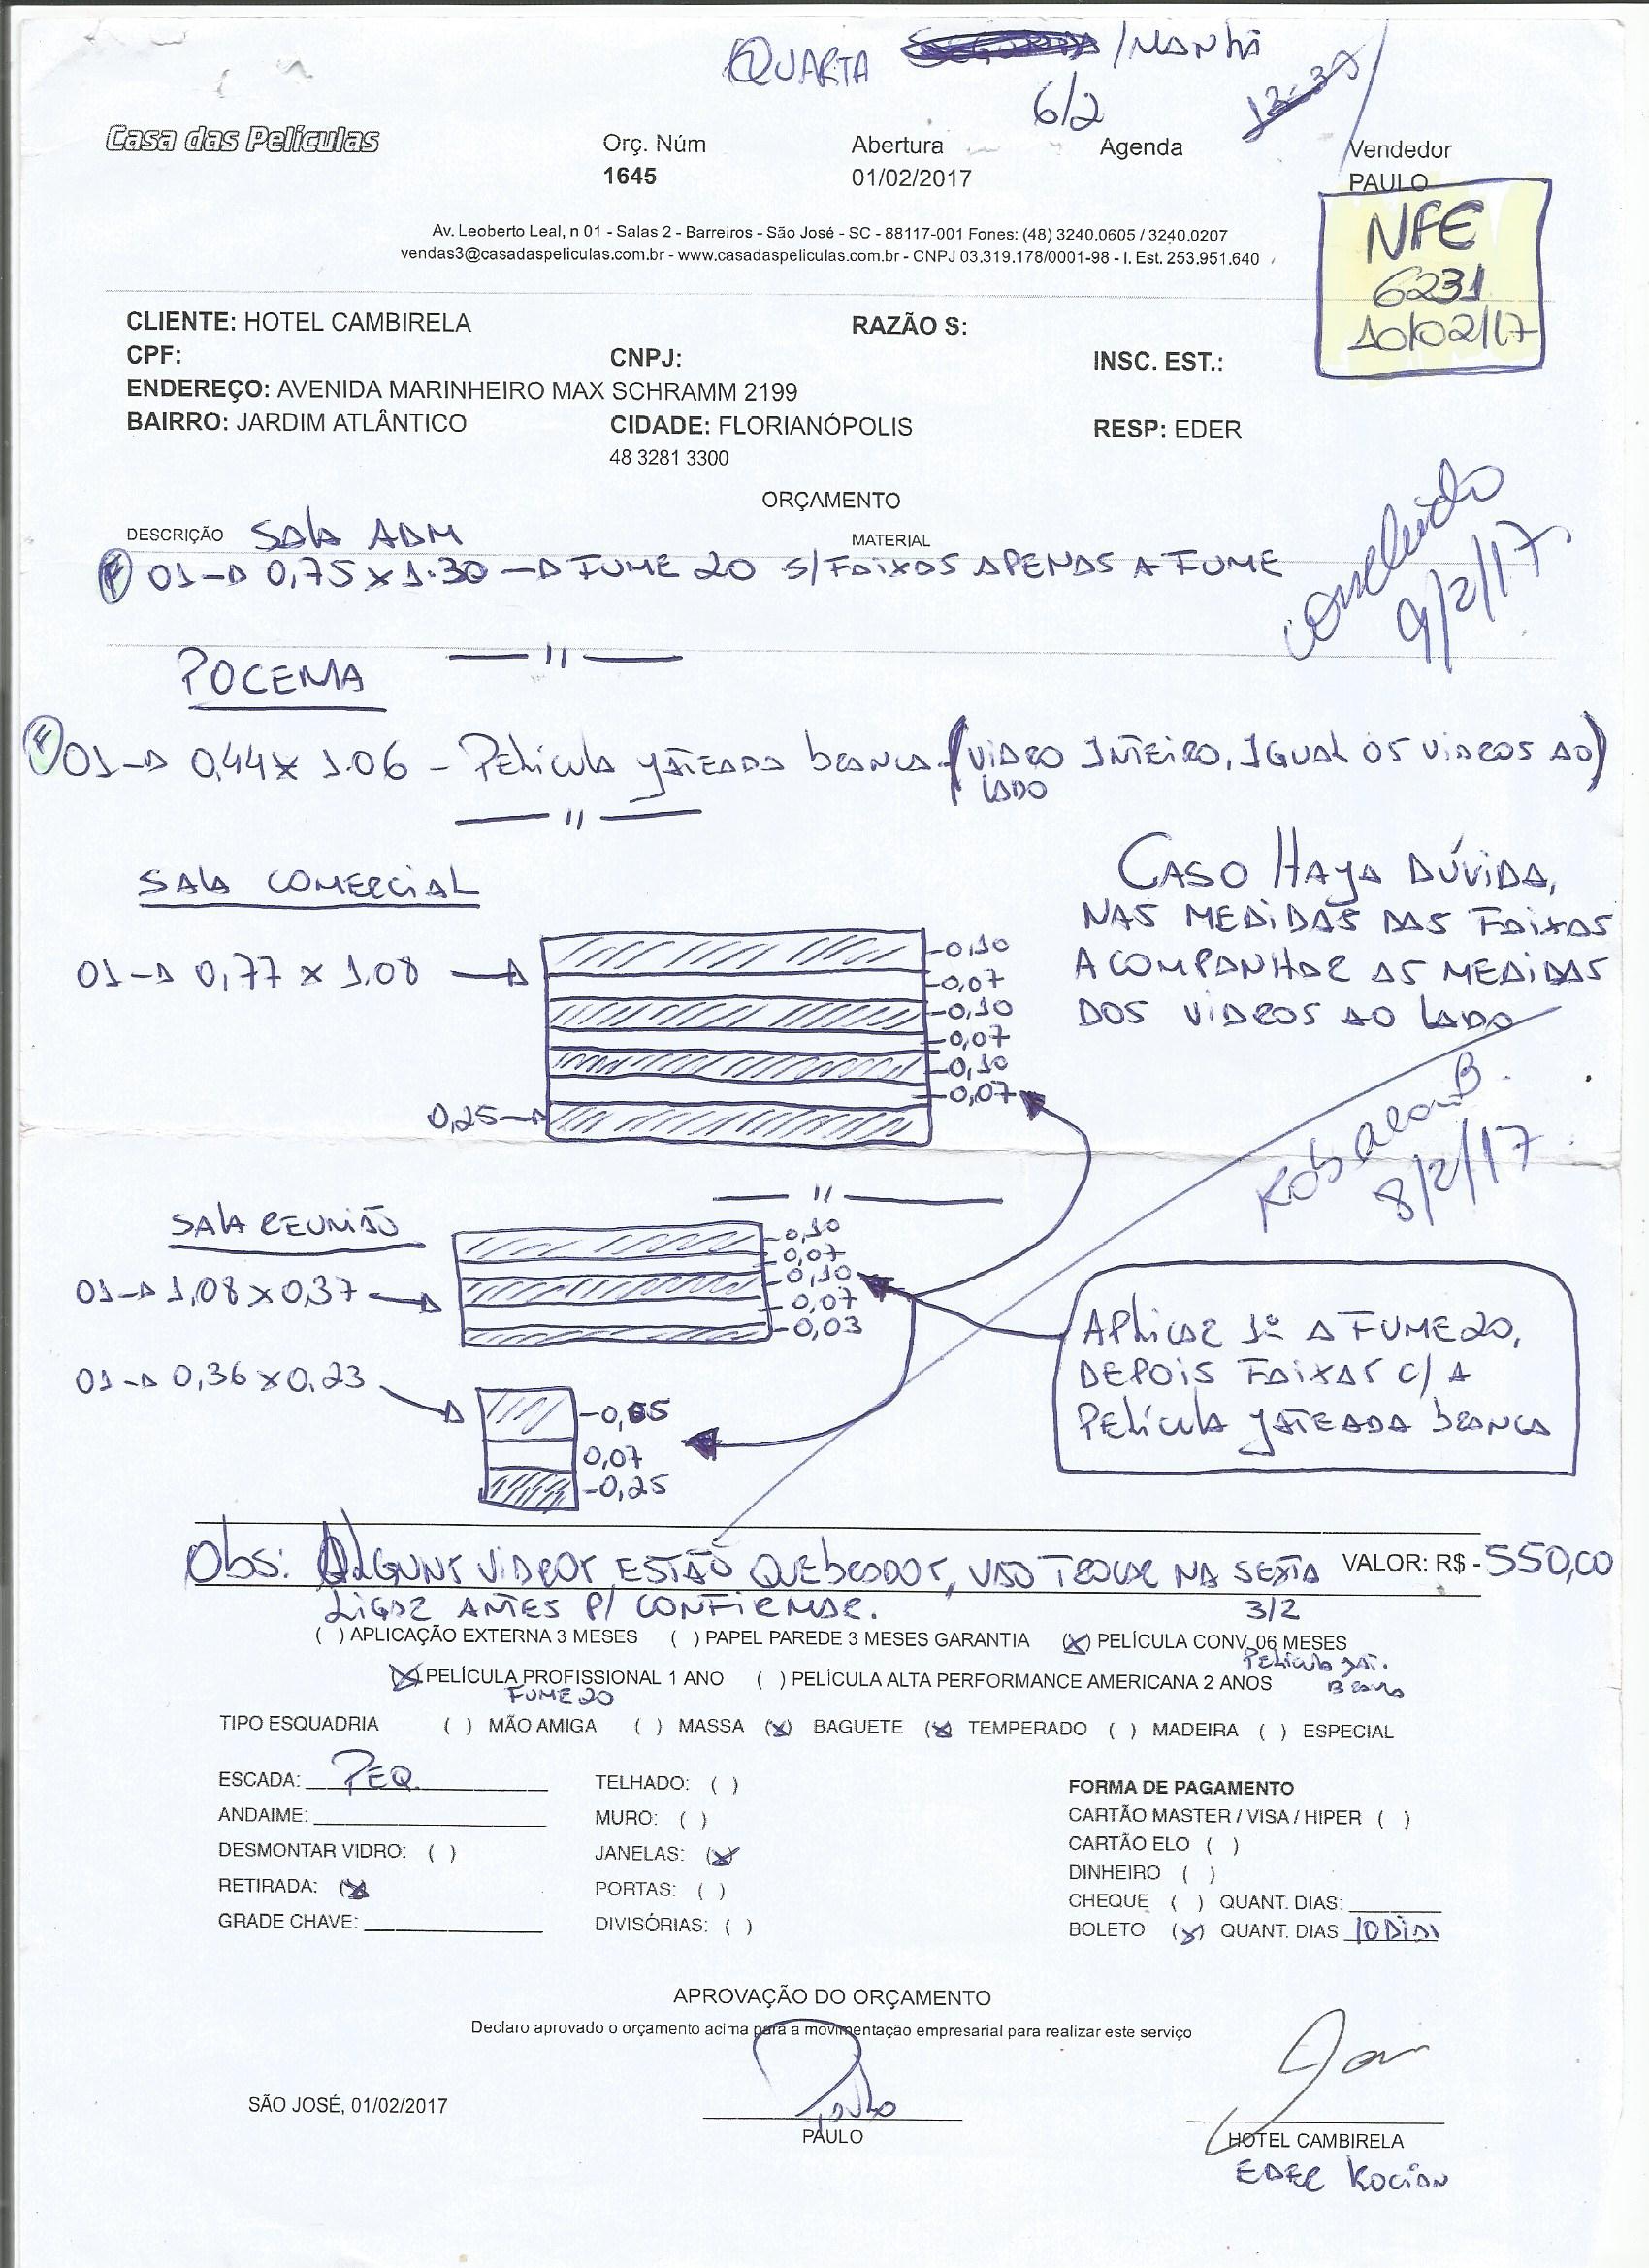 QUARTA /MANHÃ
6/2
Casa das Películas
Orç. Núm Abertura Agenda Vendedor
1645 01/02/2017 PAULO
NFE
6231
10/02/17
Av. Leoberto Leal, n 01 - Salas 2 - Barreiros - São José - SC - 88117-001 Fones: (48) 3240.0605 / 3240.0207
vendas3@casadaspeliculas.com.br - www.casadaspeliculas.com.br - CNPJ 03.319.178/0001-98 - I. Est. 253.951.640
CLIENTE: HOTEL CAMBIRELA RAZÃO S:
CPF: CNPJ: INSC. EST.:
ENDEREÇO: AVENIDA MARINHEIRO MAX SCHRAMM 2199
BAIRRO: JARDIM ATLÂNTICO CIDADE: FLORIANÓPOLIS RESP: EDER
48 3281 3300
ORÇAMENTO
DESCRIÇÃO SALA ADM MATERIAL
F 01 0,75 X 1.30 FUME 20 S/FAIXAS APENAS A FUME
concluido
9/2/17
POCEMA
F 01 0,44 X 1.06 - Película jateada branca (VIDRO INTEIRO, IGUAL OS VIDROS AO LADO)
SALA COMERCIAL
01 0,77 X 1.08
-0,10
-0,07
-0,10
-0,07
-0,10
-0,07
0,25
CASO HAJA DÚVIDA,
NAS MEDIDAS DAS FAIXAS
ACOMPANHAR AS MEDIDAS
DOS VIDROS AO LADO
8/2/17
SALA REUNIÃO
01 1,08 X 0,37
-0,10
-0,07
-0,10
-0,07
-0,03
01 0,36 X 0,23
0,07
-0,25
APLICAR 1º A FUME 20,
DEPOIS FAIXAR C/ A
PELÍCULA JATEADA BRANCA
Obs: ALGUNS VIDROS ESTÃO QUEBRADOS, VÃO TROCAR NA SEXTA VALOR: R$ - 550,00
LIGAR ANTES P/ CONFIRMAR. 3/2
( ) APLICAÇÃO EXTERNA 3 MESES ( ) PAPEL PAREDE 3 MESES GARANTIA (X) PELÍCULA CONV. 06 MESES
Película jat. Branca
(X) PELÍCULA PROFISSIONAL 1 ANO ( ) PELÍCULA ALTA PERFORMANCE AMERICANA 2 ANOS
FUME 20
TIPO ESQUADRIA ( ) MÃO AMIGA ( ) MASSA (X) BAGUETE (X) TEMPERADO ( ) MADEIRA ( ) ESPECIAL
ESCADA: PEQ. TELHADO: ( ) FORMA DE PAGAMENTO
ANDAIME: MURO: ( ) CARTÃO MASTER / VISA / HIPER ( )
DESMONTAR VIDRO: ( ) JANELAS: (X) CARTÃO ELO ( )
DINHEIRO ( )
RETIRADA: (X) PORTAS: ( ) CHEQUE ( ) QUANT. DIAS:
GRADE CHAVE: DIVISÓRIAS: ( ) BOLETO (X) QUANT. DIAS 10 DIAS
APROVAÇÃO DO ORÇAMENTO
Declaro aprovado o orçamento acima para a movimentação empresarial para realizar este serviço
SÃO JOSÉ, 01/02/2017
Paulo
PAULO HOTEL CAMBIRELA
EDER KOCIAN